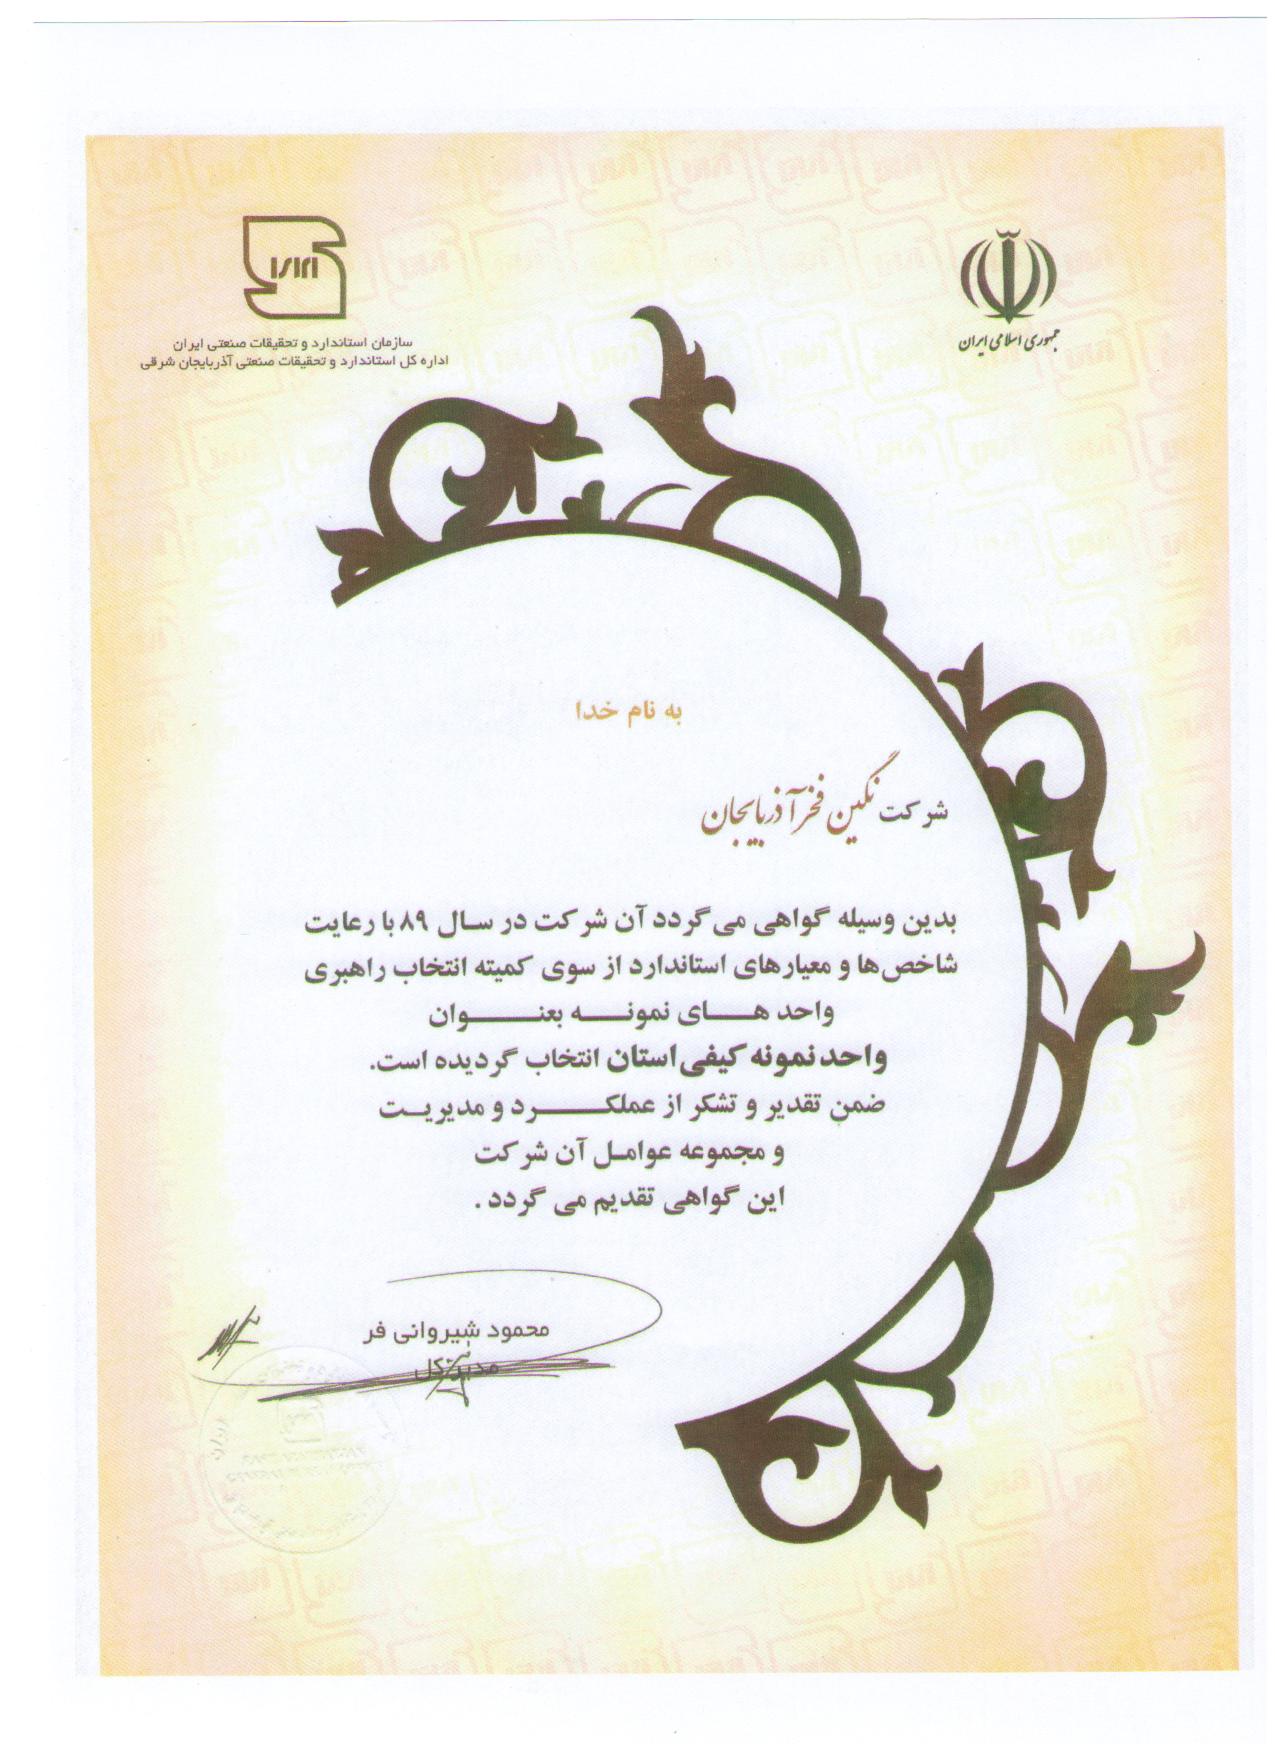 جمهوری اسلامی ایران
ISIRI
سازمان استاندارد و تحقیقات صنعتی ایران
اداره کل استاندارد و تحقیقات صنعتی آذربایجان شرقی
به نام خدا
شرکت نگین فخر آذربایجان
بدین وسیله گواهی می‌گردد آن شرکت در سال ۸۹ با رعایت
شاخص‌ها و معیارهای استاندارد از سوی کمیته انتخاب راهبری
واحد های نمونه بعنوان
واحد نمونه کیفی استان انتخاب گردیده است.
ضمن تقدیر و تشکر از عملکرد و مدیریت
و مجموعه عوامل آن شرکت
این گواهی تقدیم می گردد .
محمود شیروانی فر
مدیر کل